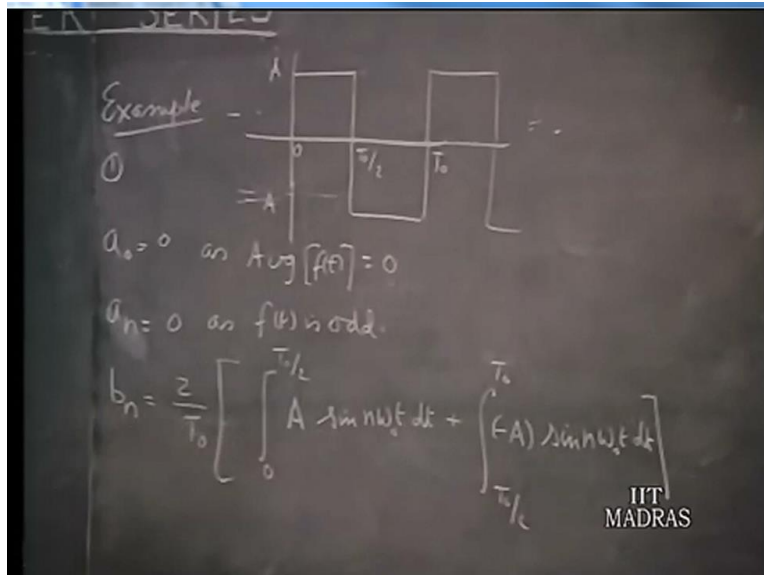 ER SERIES
Example
A
0 T₀/2 T₀
①
-A
a₀ = 0 as Avg [f(t)] = 0
aₙ = 0 as f(t) is odd.
bₙ = 2/T₀ [ ∫₀^{T₀/2} A sin nω₀t dt + ∫_{T₀/2}^{T₀} (-A) sin nω₀t dt ]
IIT
MADRAS